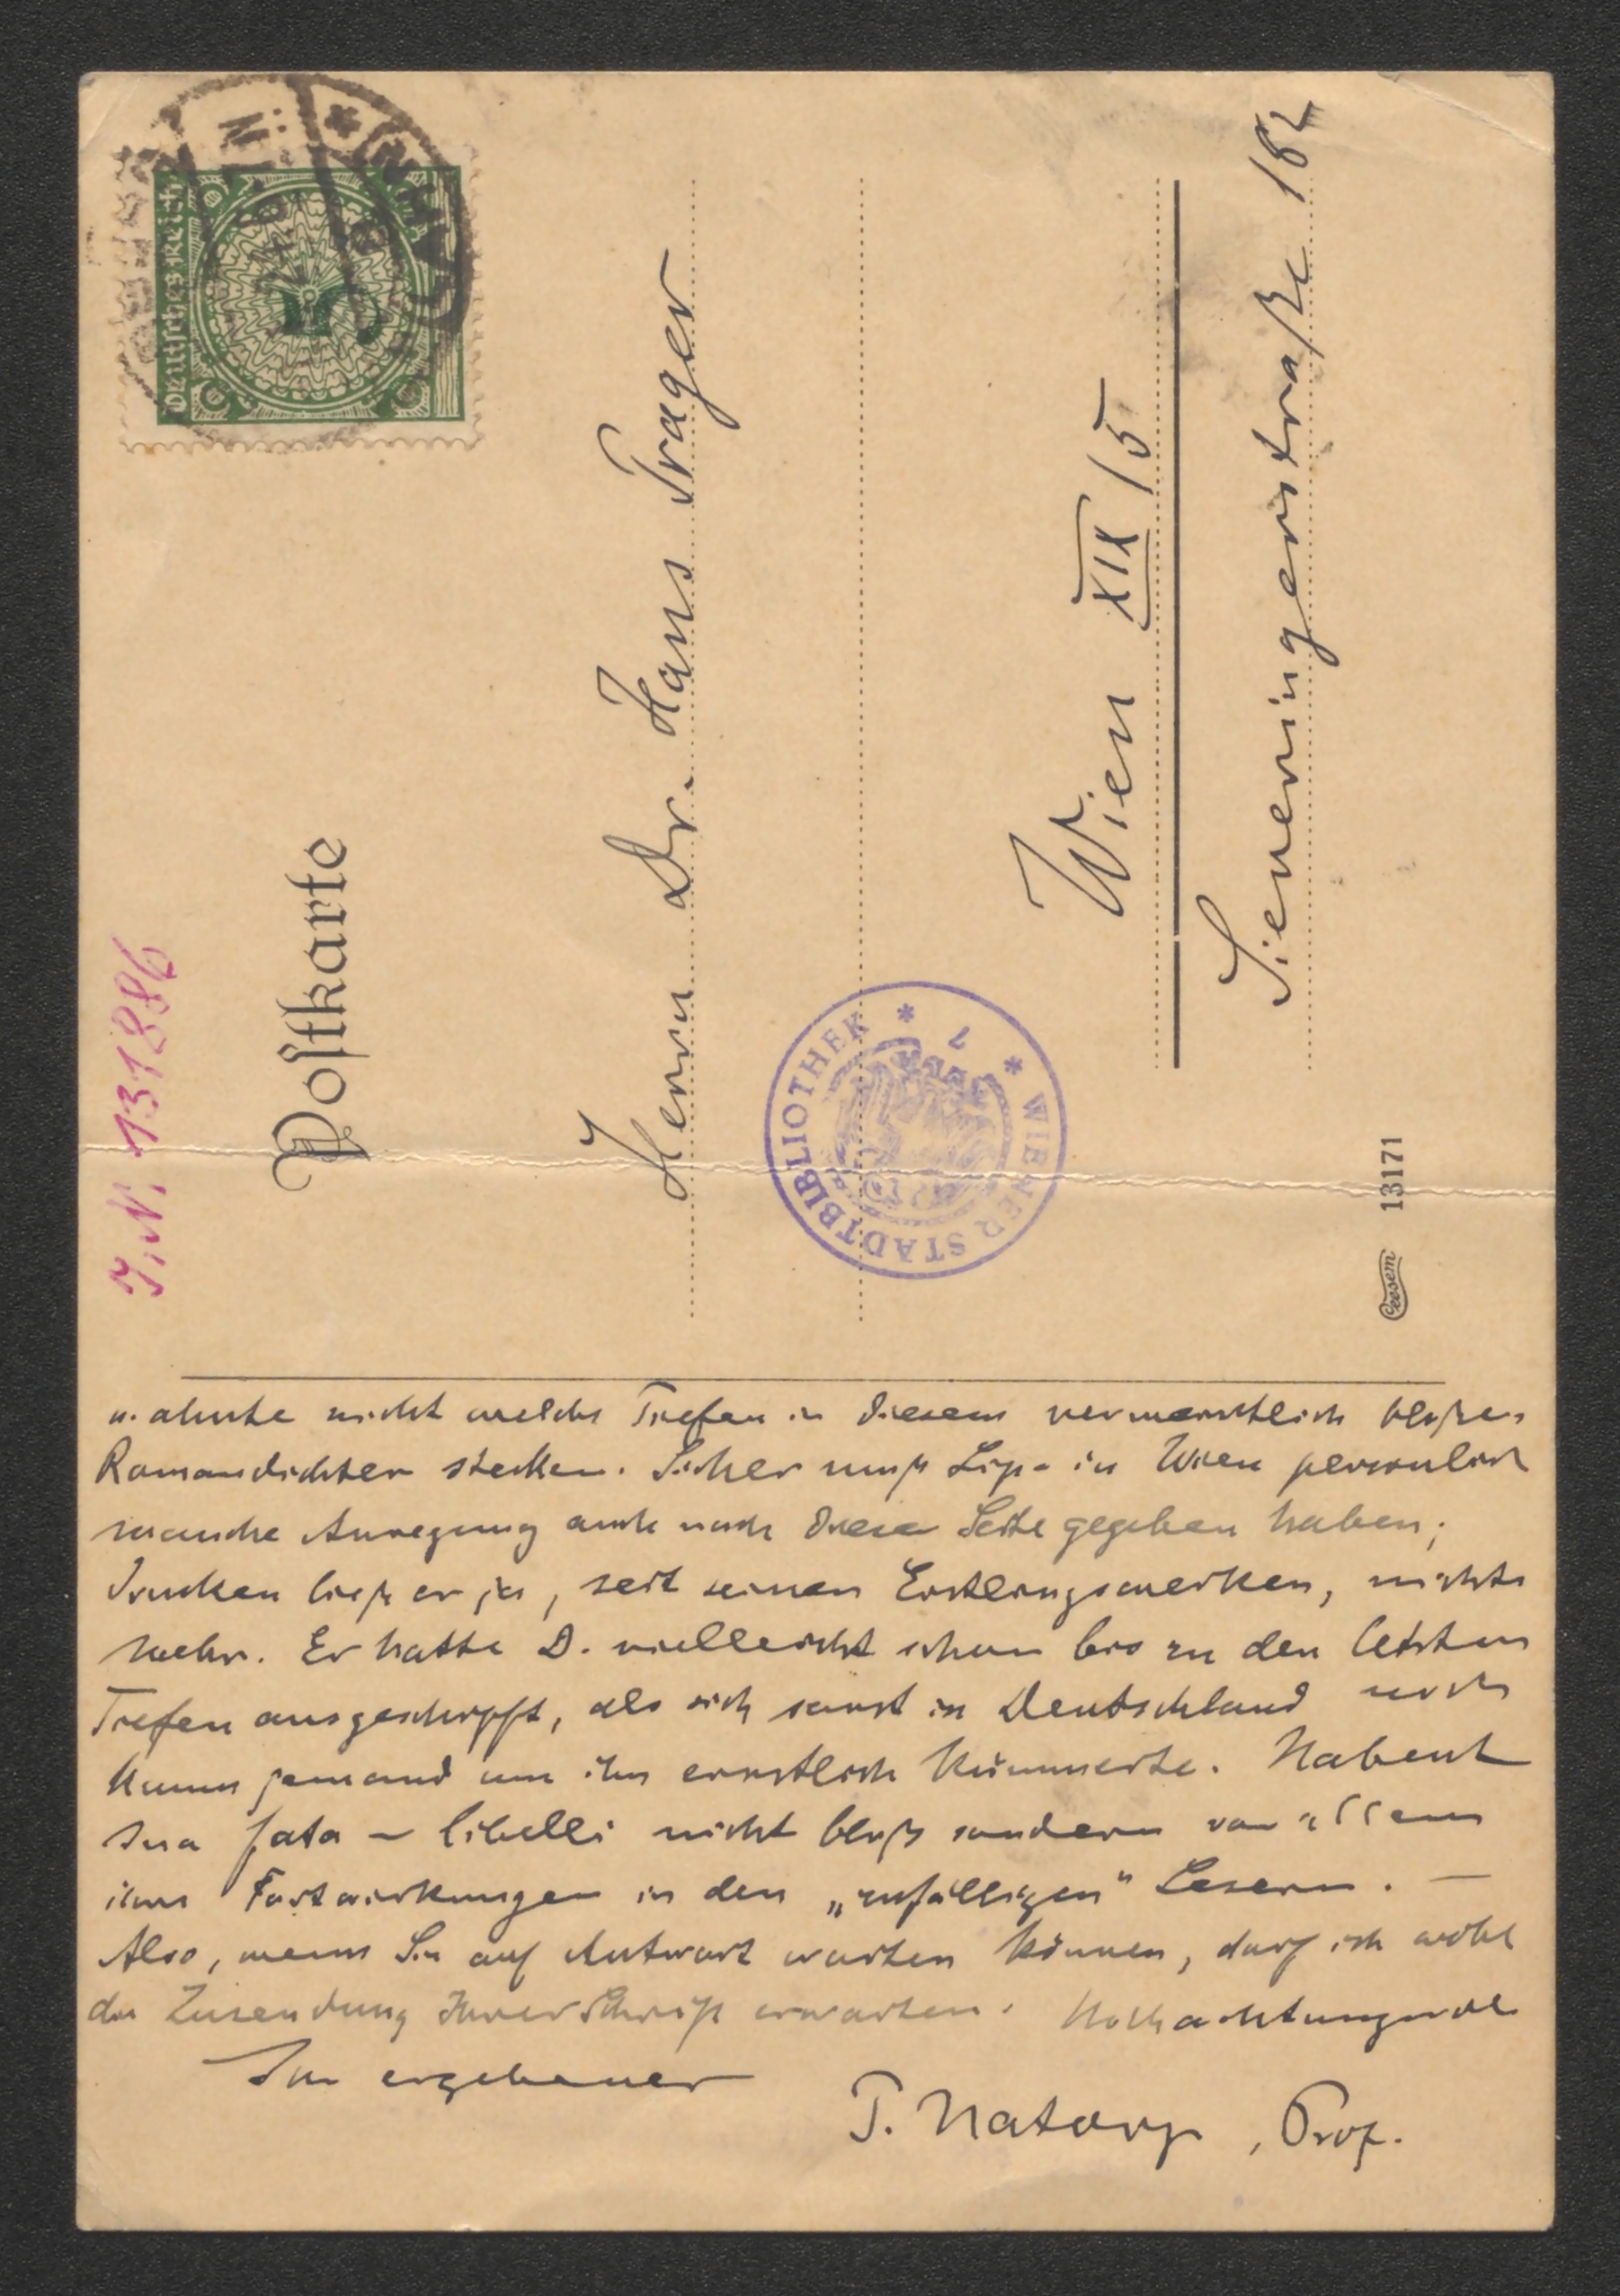 J.N. 131886
Postkarte
Deutsches Reich
5
Herrn Dr. Hans Prager
Wien XIX/5
Sieveringerstraße 182
WIENER STADTBIBLIOTHEK
Ceesem 13171
u. ahnte nicht welche Tiefen in diesem vermeintlich bloßen
Romandichter stecken. Sicher muß Lip. in Wien persönlich
manche Anregung auch nach dieser Seite gegeben haben;
drucken ließ er ja, seit seinen Erstlingswerken, nichts
mehr. Er hatte D. vielleicht schon bis zu den letzten
Tiefen ausgeschöpft, als sich sonst in Deutschland noch
kaum jemand um ihn ernstlich kümmerte. Habent
sua fata – libelli nicht bloß sondern vor allem
ihre Fortwirkungen in den „zufälligen" Lesern. —
Also, wenn Sie auf Antwort warten können, darf ich wohl
die Zusendung Ihrer Schrift erwarten. Hochachtungsvoll
Ihr ergebener
P. Natorp, Prof.